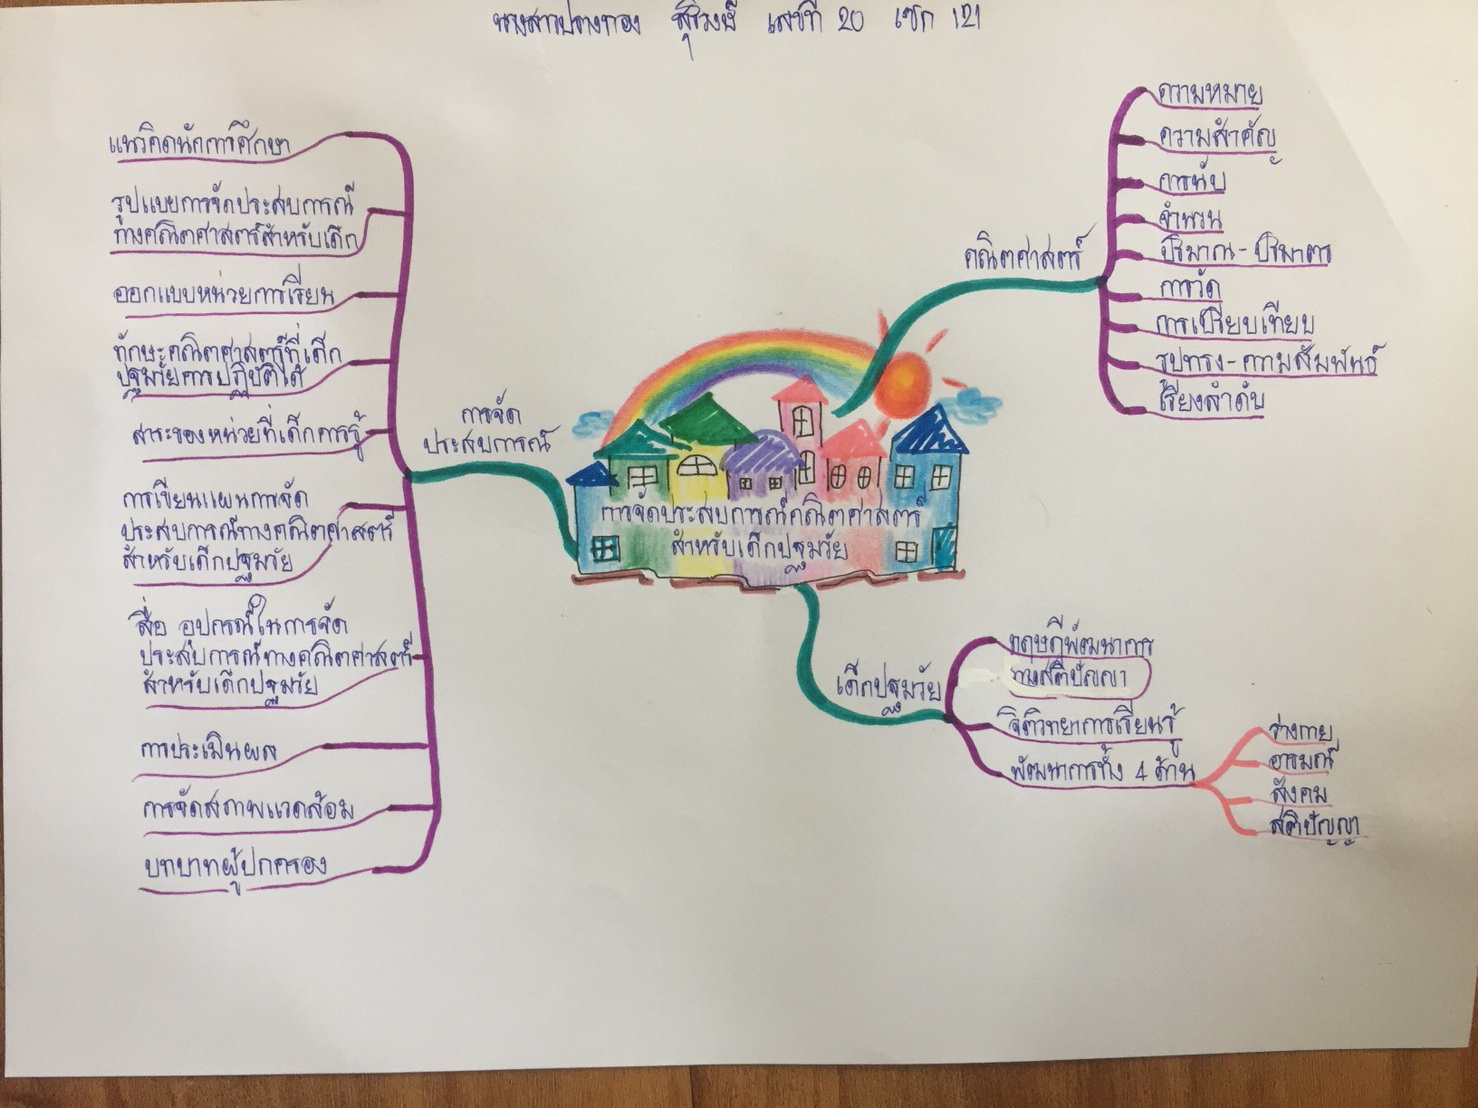 นางสาวปรางทอง สุริวงษ์ เลขที่ 20 เซก 121
แนวคิดนักการศึกษา
รูปแบบการจัดประสบการณ์
ทางคณิตศาสตร์สำหรับเด็ก
ออกแบบหน่วยการเรียน
ทักษะคณิตศาสตร์ที่เด็ก
ปฐมวัยควรปฏิบัติได้
สาระของหน่วยที่เด็กควรรู้
การเขียนแผนการจัด
ประสบการณ์ทางคณิตศาสตร์
สำหรับเด็กปฐมวัย
สื่อ อุปกรณ์ในการจัด
ประสบการณ์ทางคณิตศาสตร์
สำหรับเด็กปฐมวัย
การประเมินผล
การจัดสภาพแวดล้อม
บทบาทผู้ปกครอง
การจัด
ประสบการณ์
การจัดประสบการณ์คณิตศาสตร์
สำหรับเด็กปฐมวัย
คณิตศาสตร์
ความหมาย
ความสำคัญ
การนับ
จำนวน
ปริมาณ-ปริมาตร
การวัด
การเปรียบเทียบ
รูปทรง-ความสัมพันธ์
เรียงลำดับ
เด็กปฐมวัย
ทฤษฎีพัฒนาการ
ทางสติปัญญา
จิตวิทยาการเรียนรู้
พัฒนาการทั้ง 4 ด้าน
ร่างกาย
อารมณ์
สังคม
สติปัญญา